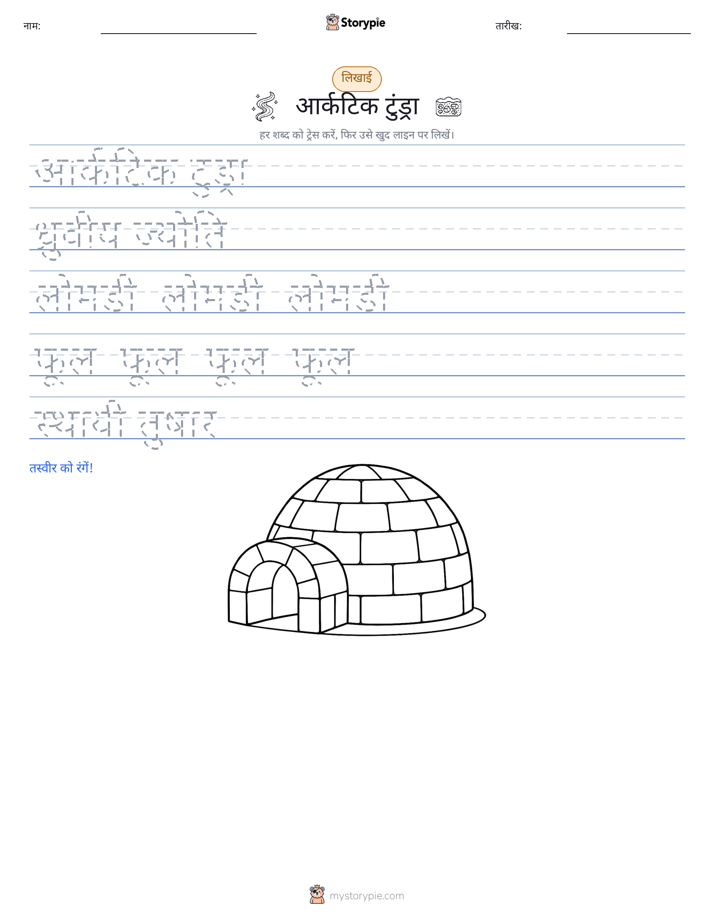 नाम:
Storypie
तारीख:
लिखाई
आर्कटिक टुंड्रा
हर शब्द को ट्रेस करें, फिर उसे खुद लाइन पर लिखें।
आर्कटिक टुंड्रा
ध्रुवीय ज्योति
लोमड़ी लोमड़ी लोमड़ी
फूल फूल फूल फूल
स्थायी तुषार
तस्वीर को रंगें!
mystorypie.com